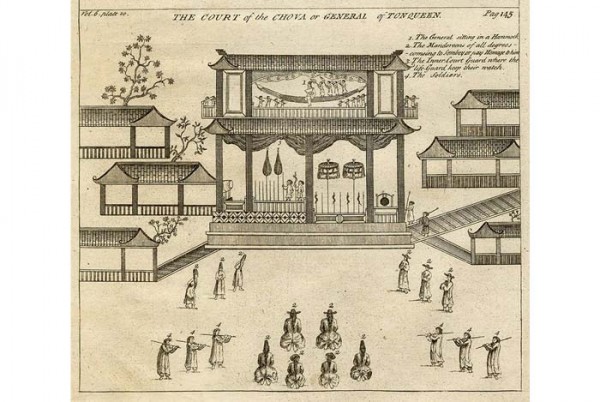 Vol. 6. plate 10.
THE COURT of the CHOVA or GENERAL of TONQUEEN.
Pag 145
1. The General sitting in a Hammock
2. The Mandareens of all degrees
coming to Sombey or pay Homage to him
3. The Inner Court Guard where the
life Guard keep their watch.
4. The Soldiers.